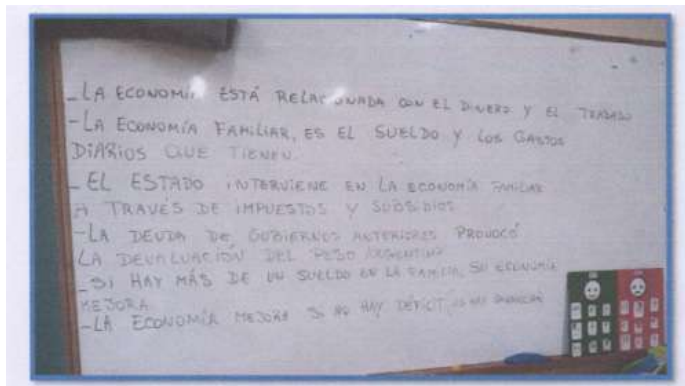 - LA ECONOMÍA ESTÁ RELACIONADA CON EL DINERO Y EL TRABAJO
- LA ECONOMÍA FAMILIAR, ES EL SUELDO Y LOS GASTOS
DIARIOS QUE TIENEN.
- EL ESTADO INTERVIENE EN LA ECONOMÍA FAMILIAR
A TRAVÉS DE IMPUESTOS Y SUBSIDIOS
- LA DEUDA DE GOBIERNOS ANTERIORES PROVOCÓ
LA DEVALUACIÓN DEL PESO ARGENTINO
- SI HAY MÁS DE UN SUELDO EN LA FAMILIA, SU ECONOMÍA
MEJORA
- LA ECONOMÍA MEJORA SI NO HAY DÉFICIT,